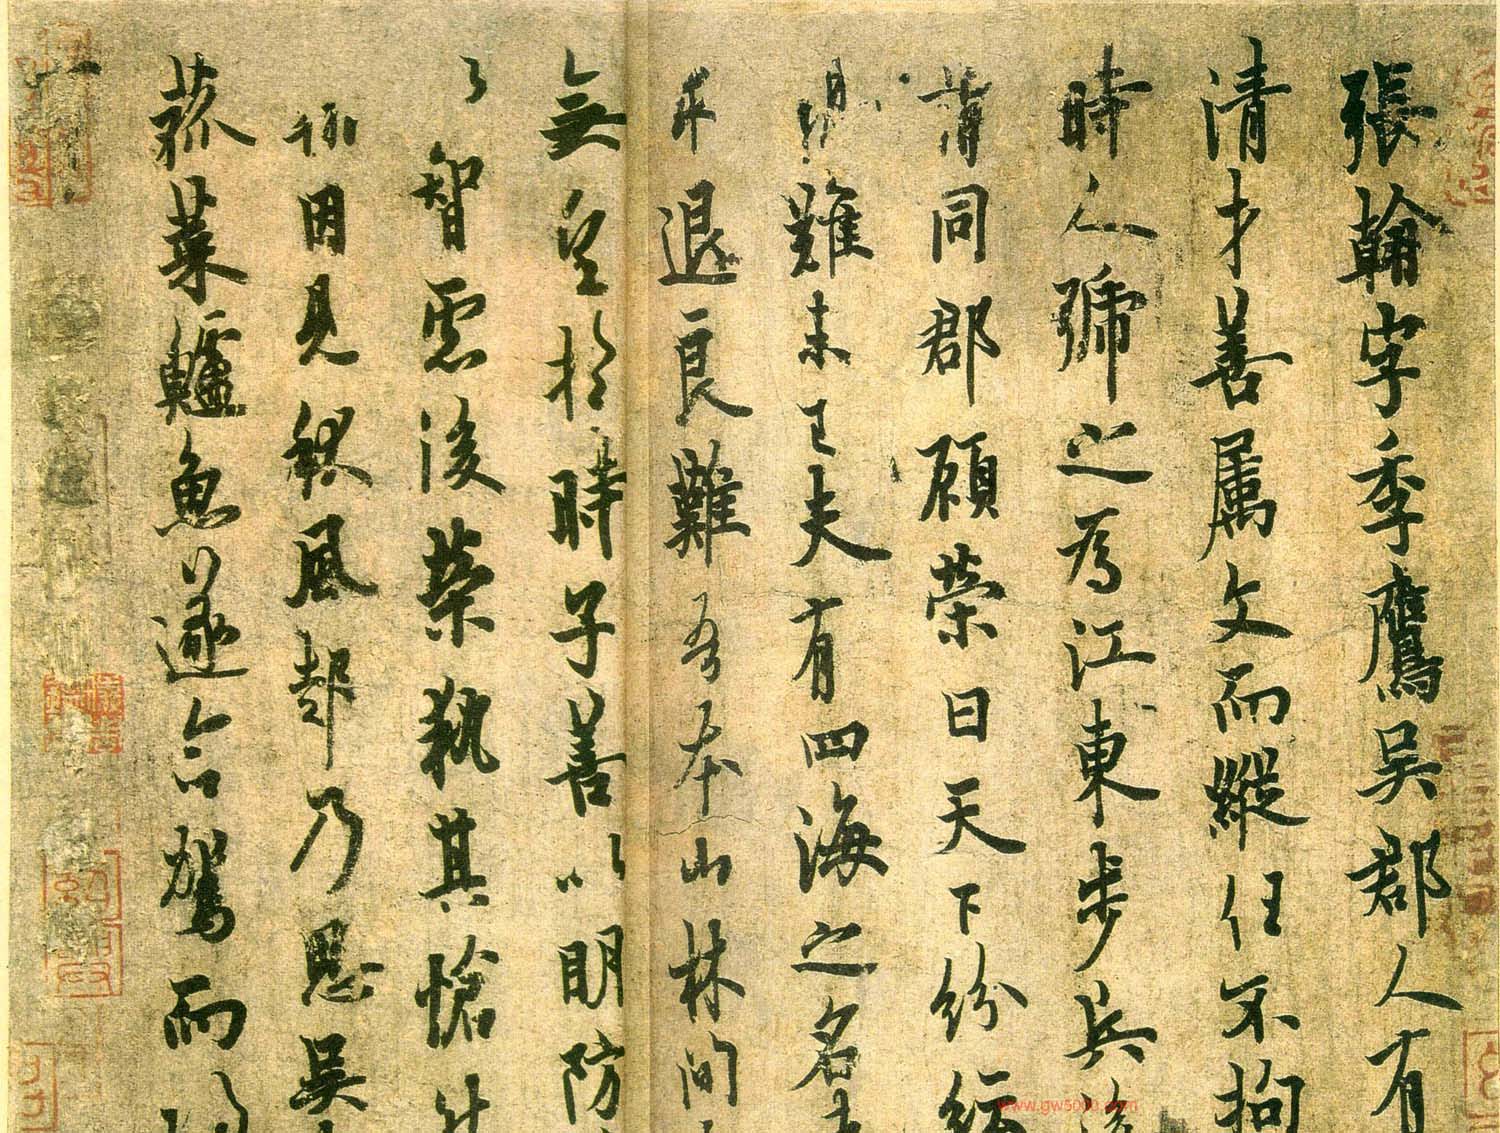 張翰字季鷹吳郡人有
清才善属文而縱任不拘
時人號之為江東步兵
同郡顧榮曰天下紛
難未已夫有四海之名
求退良難吾本山林間
無望於時子善以明防
以智慮後榮執其愴然
因見秋風起乃思吳
菰菜鱸魚遂命駕而
www.gw5000.com